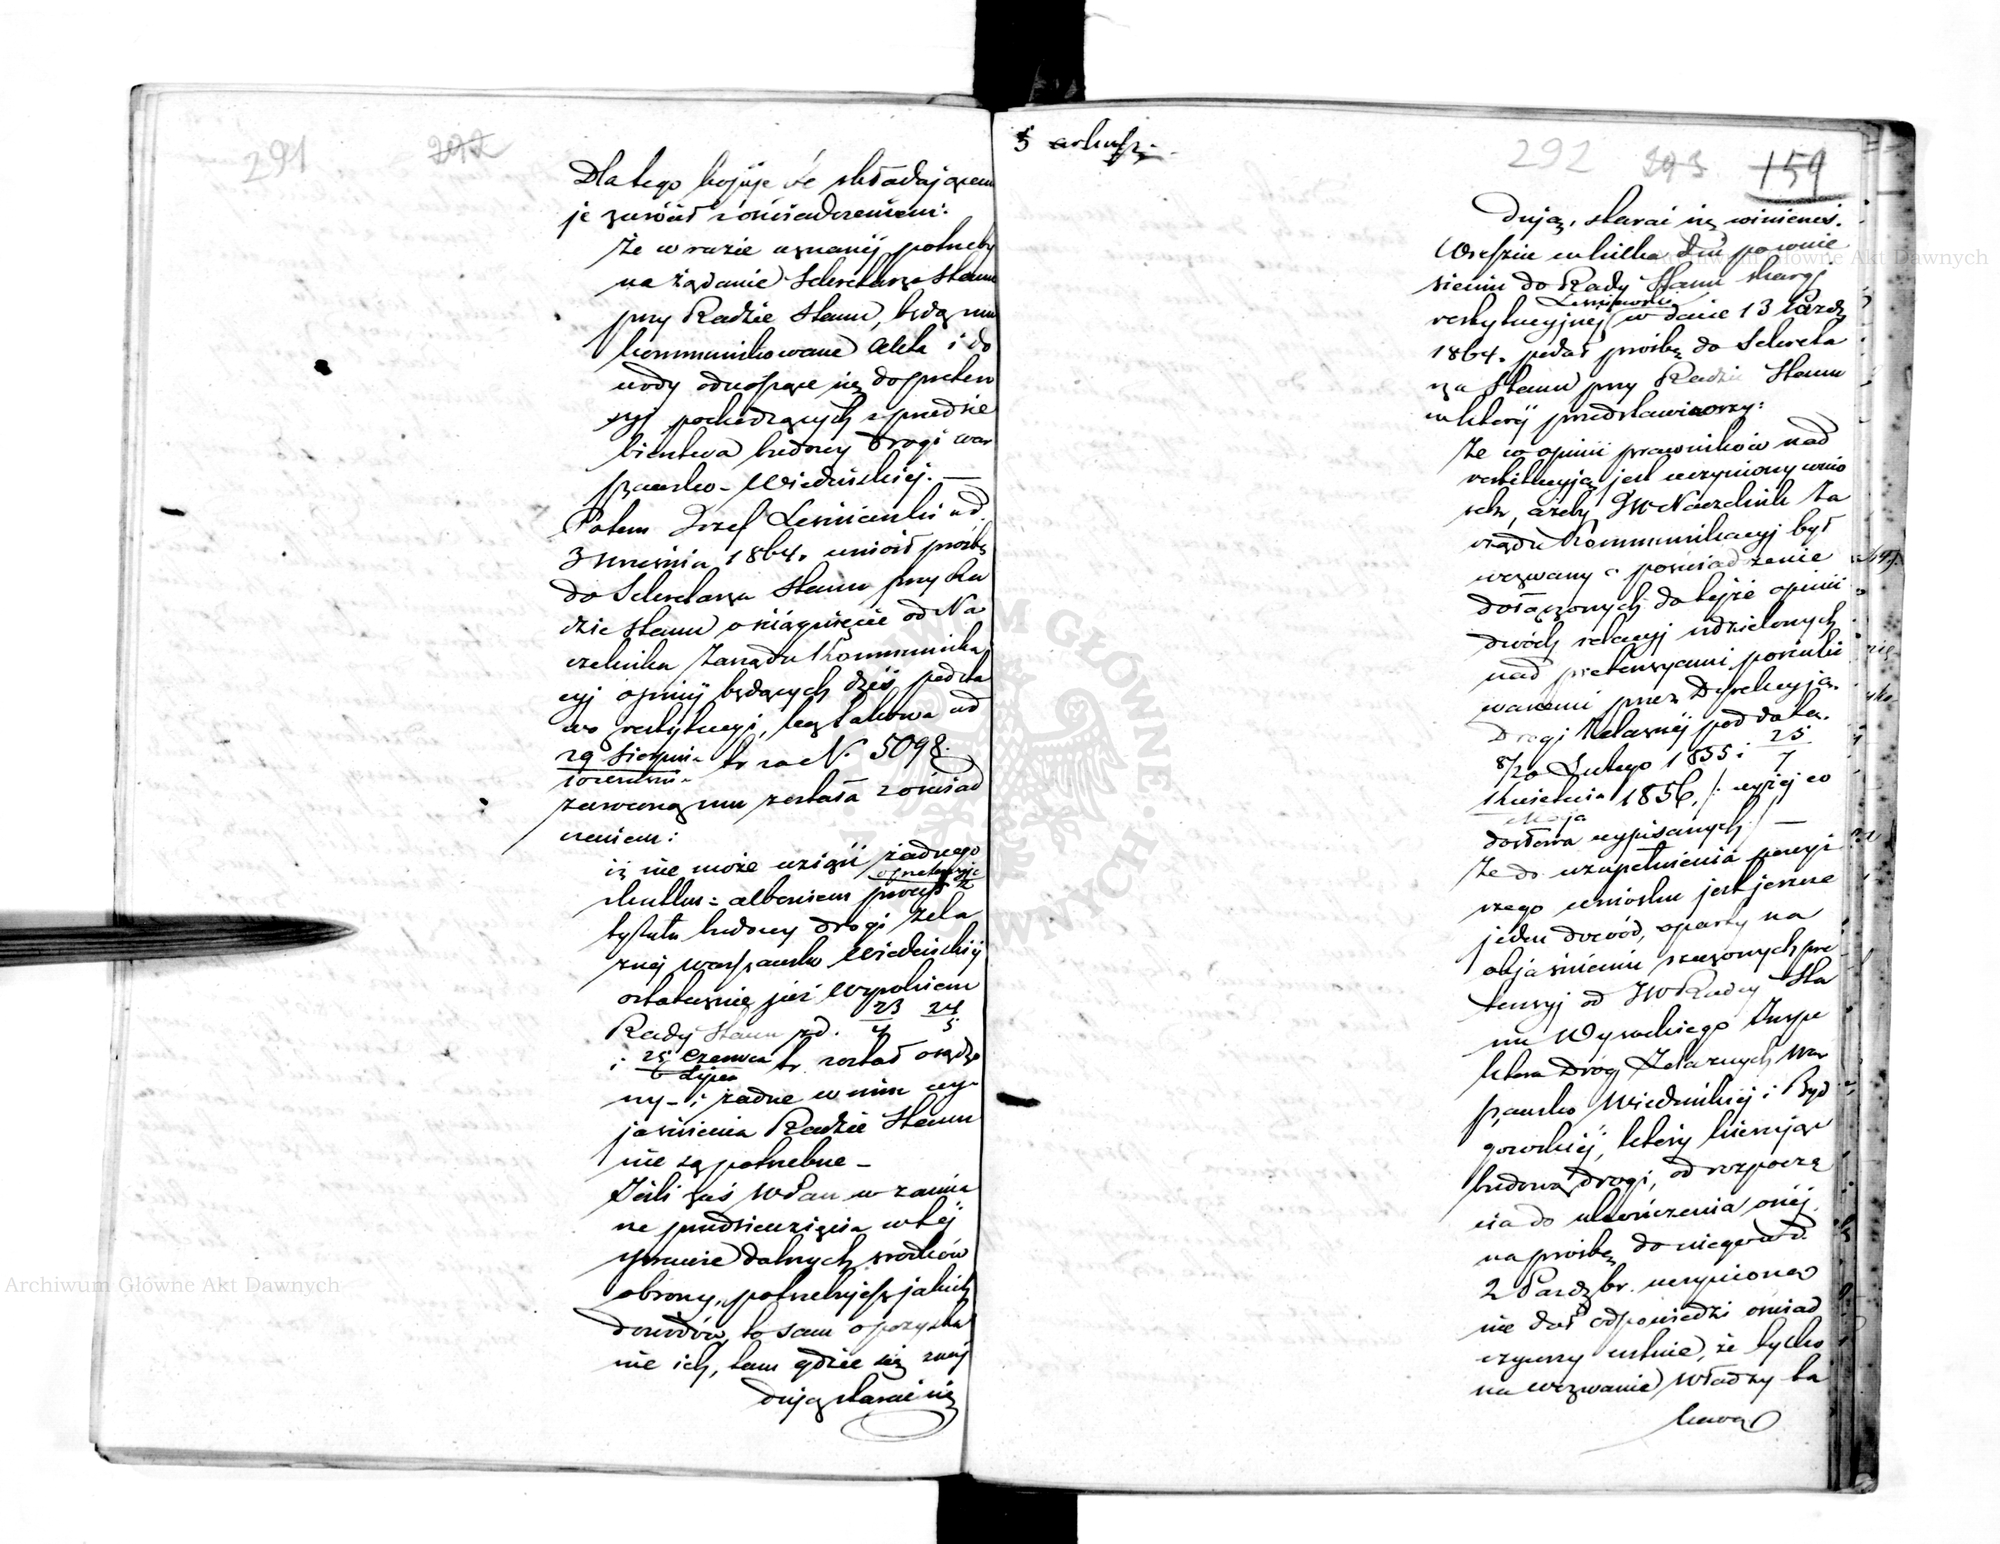 291
292
Dla tego kopije te składającem
je zwrócił z oświadczeniem:
że w razie uznanej potrzeby
na żądanie Sekretarza Stanu
przy Radzie Stanu, będą mu
kommunikowane Akta i do
wody odnoszące się do preten
syi pochodzących z przedsię
bierstwa budowy drogi War
szawsko-Wiedeńskiej. —
Potem Józef Leśniewski pod d.
3 Września 1864. wniósł prośbę
do Sekretarza Stanu przy Ra
dzie Stanu o ściągnięcie od Na
czelnika Zarządu Kommunika
cyj opinij będących dziś podsta
wą restytucyi, lecz takowa pod
29 Sierpnia tr za N. 5098.
10 Września
zwróconą mu została z oświad
czeniem:
iż nie może wziąść żadnego
skutku: albowiem proces
o pretensyje z
tytułu budowy drogi Żela
znej Warszawsko Wiedeńskiej
ostatecznie już Wyrokiem
Rady Stanu z d. 23/4 24/5
i 25 Czerwca tr. został osądzo
Lipca
ny — i żadne w nim wy-
jaśnienia Radzie Stanu
nie są potrzebne —
Jeśli zaś WPan w zamia
rze przedsięwzięcia w tej
sprawie dalszych środków
obrony, potrzebujesz jakich
dowodów, to sam o pozyska
nie ich, tam gdzie się znaj
dują starać się
5 arkusz.
292
293
159
dują, starać się winieneś.
Wreszcie w kilka dni po wnie
sieniu do Rady Stanu skargi
restytucyjnej Leśniewski w dacie 13 Paźdz
1864. podał prośbę do Sekreta
rza Stanu przy Radzie Stanu
w której przedstawiwszy:
że w opinii prawników nad
restitucyją jest uczyniony wnio
sek, ażeby JW Naczelnik Za
rządu Kommunikacyj był
wezwany o poświadczenie
dołączonych do tejże opinii
dwóch relacyj udzielonych
nad pretensyami poszuki
wanemi przez Dyrekcyją
Drogi Żelaznej pod datą
8/20 Lutego 1855 i 25/7
Kwietnia 1856, /: wyżej co
Maja
do słowa wypisanych :/ —
że do uzupełnienia powyż
szego wniosku jest jeszcze
jeden dowód, oparty na
objaśnieniu rzeczonych pre
tensyj od JW Radcy Sta
nu Wysockiego Inspe
ktora Dróg Żelaznych War
szawsko Wiedeńskiej i Byd
goskiej, który kierując
budową drogi, od rozpoczę
cia do ukończenia onej,
na prośbę do niego w d.
2 Paźdz br. uczynioną
nie dał odpowiedzi oświad
czywszy ustnie, że tylko
na wezwanie Władzy ta
kową